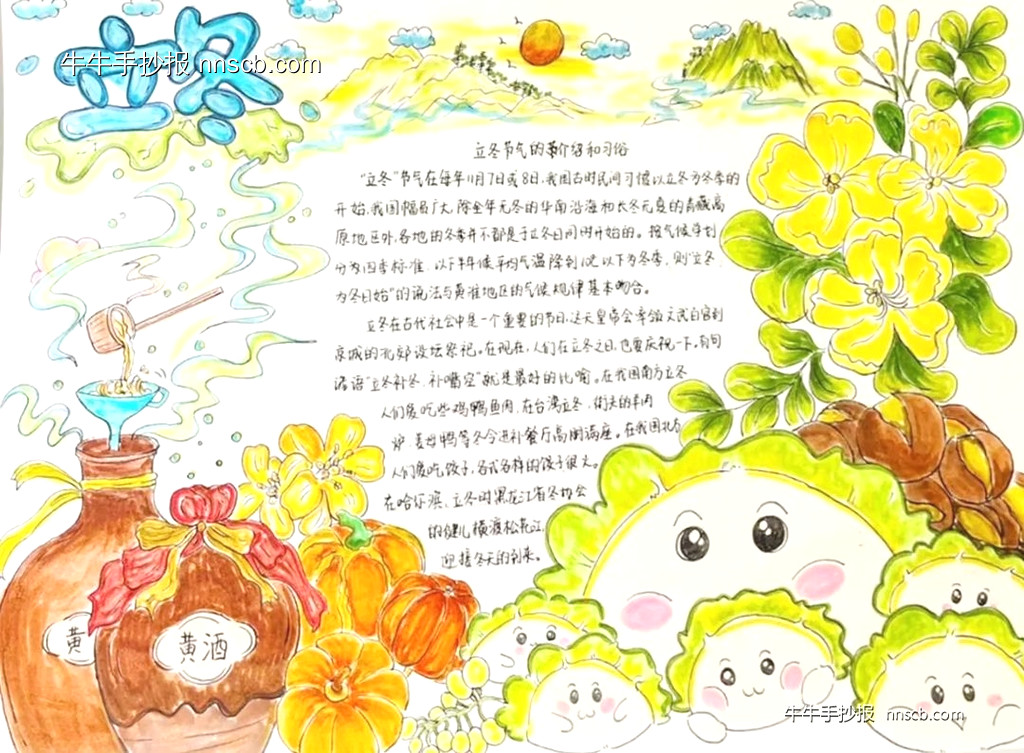 立冬
牛牛手抄报 nnscb.com
立冬节气的介绍和习俗
"立冬"节气在每年11月7日或8日,我国古时民间习惯以立冬为冬季的
开始,我国幅员广大,除全年无冬的华南沿海和长冬无夏的青藏高
原地区外,各地的冬季并不都是于立冬日同时开始的。按气候学划
分四季标准,以下半年候平均气温降到10℃以下为冬季,则"立冬
为冬日始"的说法与黄淮地区的气候规律基本吻合。
立冬在古代社会中是一个重要的节日,这天皇帝会率领文武百官到
京城的北郊设坛祭祀。在现在,人们在立冬之日,也要庆祝一下。有句
谚语"立冬补冬,补嘴空"就是最好的比喻。在我国南方立冬
人们爱吃些鸡鸭鱼肉,在台湾立冬,街头的羊肉
炉、姜母鸭等冬令进补餐厅高朋满座。在我国北方
人们爱吃饺子,各式各样的饺子很火。
在哈尔滨,立冬时黑龙江省冬协会
的健儿横渡松花江,
迎接冬天的到来。
黄
黄酒
牛牛手抄报 nnscb.com